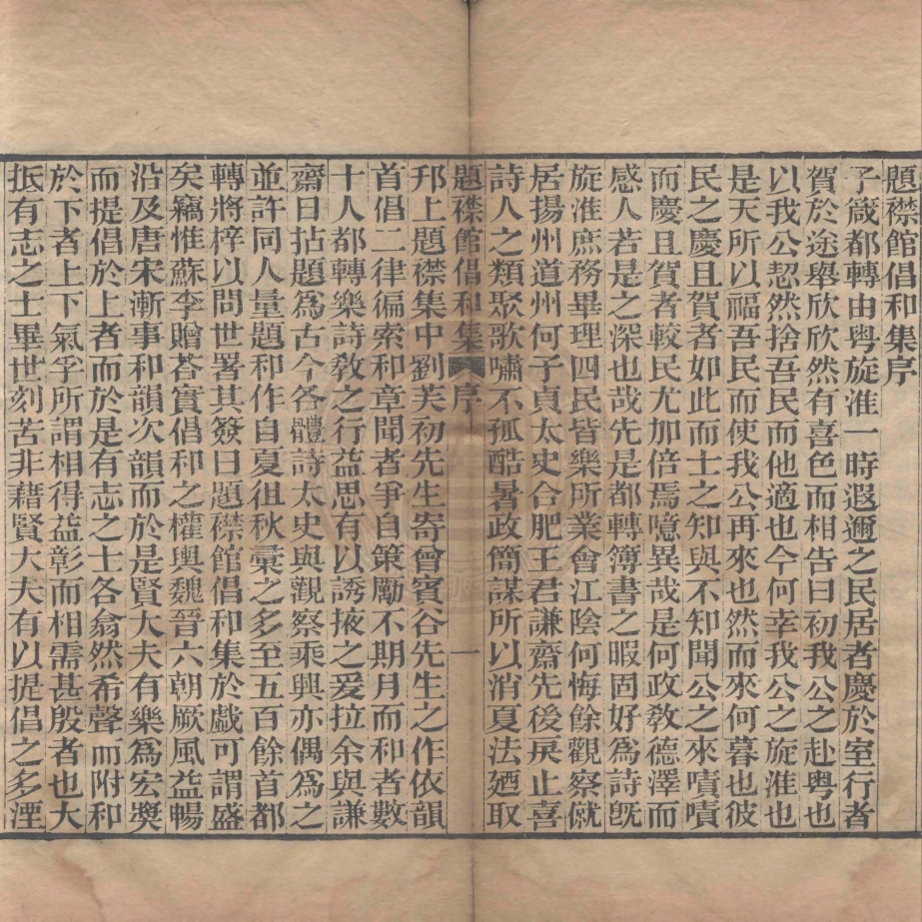 題襟館倡和集序
子箴都轉由粵旋淮一時遐邇之民居者慶於室行者
賀於途舉欣欣然有喜色而相告曰初我公之赴粵也
以我公恝然捨吾民而他適也今何幸我公之旋淮也
是天所以福吾民而使我公再來也然而來何暮也彼
民之慶且賀者如此而士之知與不知聞公之來嘖嘖
而慶且賀者較民尤加倍焉噫異哉是何政教德澤而
感人若是之深也哉先是都轉簿書之暇固好爲詩旣
旋淮庶務畢理四民皆樂所業會江陰何悔餘觀察僦
居揚州道州何子貞太史合肥王君謙齋先後戾止喜
詩人之類聚歌嘯不孤酷暑政簡謀所以消夏法廼取
題襟館倡和集 序 一
邗上題襟集中劉芙初先生寄曾賓谷先生之作依韻
首倡二律徧索和章聞者爭自策勵不期月而和者數
十人都轉樂詩教之行益思有以誘掖之爰拉余與謙
齋日拈題爲古今各體詩太史與觀察乘興亦偶爲之
並許同人量題和作自夏徂秋彙之多至五百餘首都
轉將梓以問世署其簽曰題襟館倡和集於戲可謂盛
矣竊惟蘇李贈荅實倡和之權輿魏晉六朝厥風益暢
沿及唐宋漸事和韻次韻而於是賢大夫有樂爲宏獎
而提倡於上者而於是有志之士各翕然希聲而附和
於下者上下氣孚所謂相得益彰而相需甚殷者也大
抵有志之士畢世刻苦非藉賢大夫有以提倡之多湮